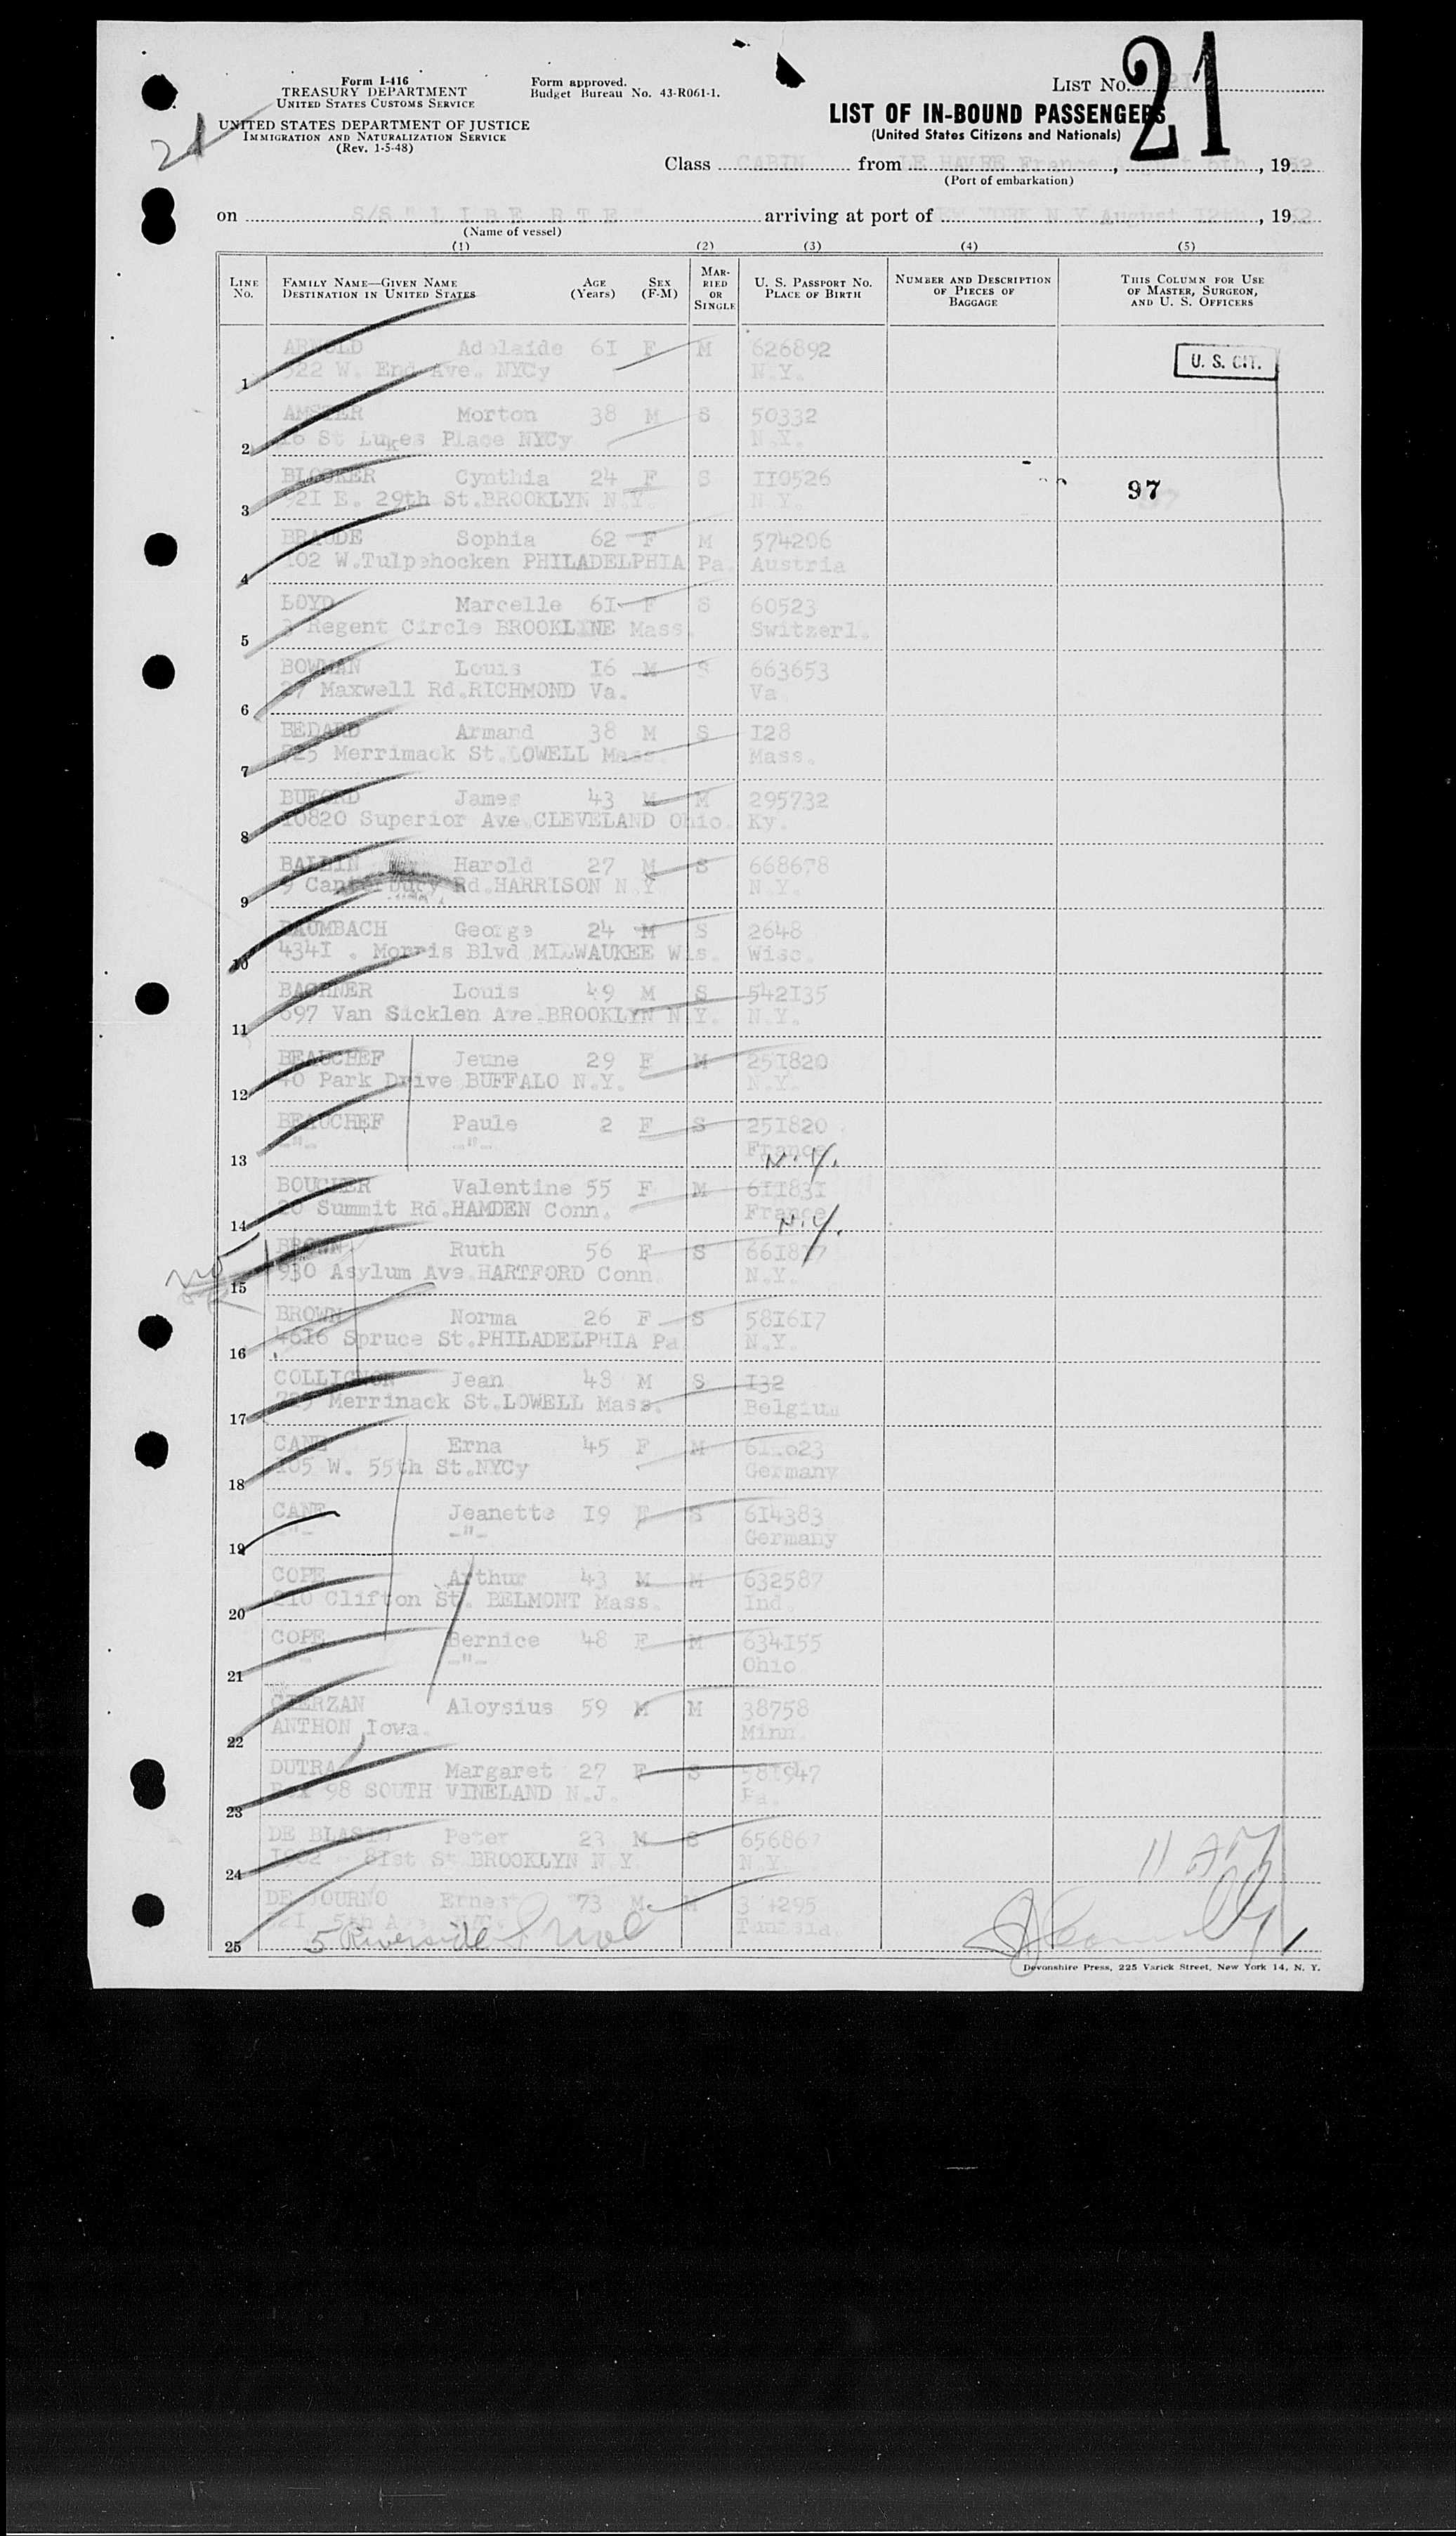 Form I-416
TREASURY DEPARTMENT
UNITED STATES CUSTOMS SERVICE
UNITED STATES DEPARTMENT OF JUSTICE
IMMIGRATION AND NATURALIZATION SERVICE
(Rev. 1-5-48)
Form approved.
Budget Bureau No. 43-R061-1.
21
LIST No. 21
21
LIST OF IN-BOUND PASSENGERS
(United States Citizens and Nationals)
Class CABIN from LE HAVRE France, August 6th, 1952
(Port of embarkation)
on S/S "LIBERTE" arriving at port of NEW YORK N.Y August 12th, 1952
(Name of vessel)
(1) (2) (3) (4) (5)
LINE No.
FAMILY NAME—GIVEN NAME DESTINATION IN UNITED STATES
AGE (Years)
SEX (F-M)
MARRIED OR SINGLE
U. S. PASSPORT NO. PLACE OF BIRTH
NUMBER AND DESCRIPTION OF PIECES OF BAGGAGE
THIS COLUMN FOR USE OF MASTER, SURGEON, AND U. S. OFFICERS
ARNOLD Adelaide 61 F M 626892
U. S. CIT.
1 522 W. End Ave. NYCy N.Y.
AMSTER Morton 38 M S 50332
2 16 St Lukes Place NYCy N.Y.
BLOCKER Cynthia 24 F S 110526
97
3 921 E. 29th St.BROOKLYN N.Y. N Y.
BRAUDE Sophia 62 F M 574206
4 102 W.Tulpehocken PHILADELPHIA Pa. Austria
LOYD Marcelle 61 F S 60523
5 3 Regent Circle BROOKLINE Mass. Switzerl.
BOWMAN Louis 16 M S 663653
6 27 Maxwell Rd.RICHMOND Va. Va
BEDARD Armand 38 M S 128
7 725 Merrimack St.LOWELL Mass. Mass.
BUFORD James 43 M M 295732
8 10820 Superior Ave CLEVELAND Ohio. Ky.
BALBIN Harold 27 M S 668678
9 9 Canterbury Rd.HARRISON N.Y N.Y.
BAUMBACH George 24 M S 2648
10 4341 . Morris Blvd MILWAUKEE Wis. Wisc.
BACHNER Louis 49 M S 542135
11 697 Van Sicklen Ave.BROOKLYN N.Y. N.Y.
BEAUCHEF Jeune 29 F M 251820
12 40 Park Drive BUFFALO N.Y. N.Y.
BEAUCHEF Paule 2 F S 251820
13 -"- -"- France
N.Y.
BOUCHER Valentine 55 F M 611831
14 20 Summit Rd.HAMDEN Conn. France
N.Y.
BROWN Ruth 56 F S 661817
no
15 930 Asylum Ave HARTFORD Conn. N.Y.
BROWN Norma 26 F S 581617
16 4616 Spruce St.PHILADELPHIA Pa. N.Y.
COLLIGNON Jean 48 M S 132
17 725 Merrinack St.LOWELL Mass. Belgium
CANE Erna 45 F M
18 105 W. 55th St.NYCy Germany
CANE Jeanette 19 F S 614383
19 -"- -"- Germany
COPE Arthur 43 M M 632587
20 210 Clifton St. BELMONT Mass. Ind.
COPE Bernice 48 F M 634155
21 -"- -"- Ohio
CZERZAN Aloysius 59 M M 38758
22 ANTHON Iowa. Minn.
DUTRA Margaret 27 F S 581947
23 Box 98 SOUTH VINELAND N.J. Pa.
DE BLASIO Peter 23 M S 656867
24 81st St BROOKLYN N Y N.Y
DE JOURNO Ernest 73 M M
25 Tunisia.
5 Riverside Drive
Devonshire Press, 225 Varick Street, New York 14, N. Y.